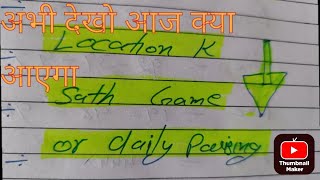 अभी देखो आज क्या
आएगा
Location K
Sath Game
or daily Pairing
Thumbnail
Maker